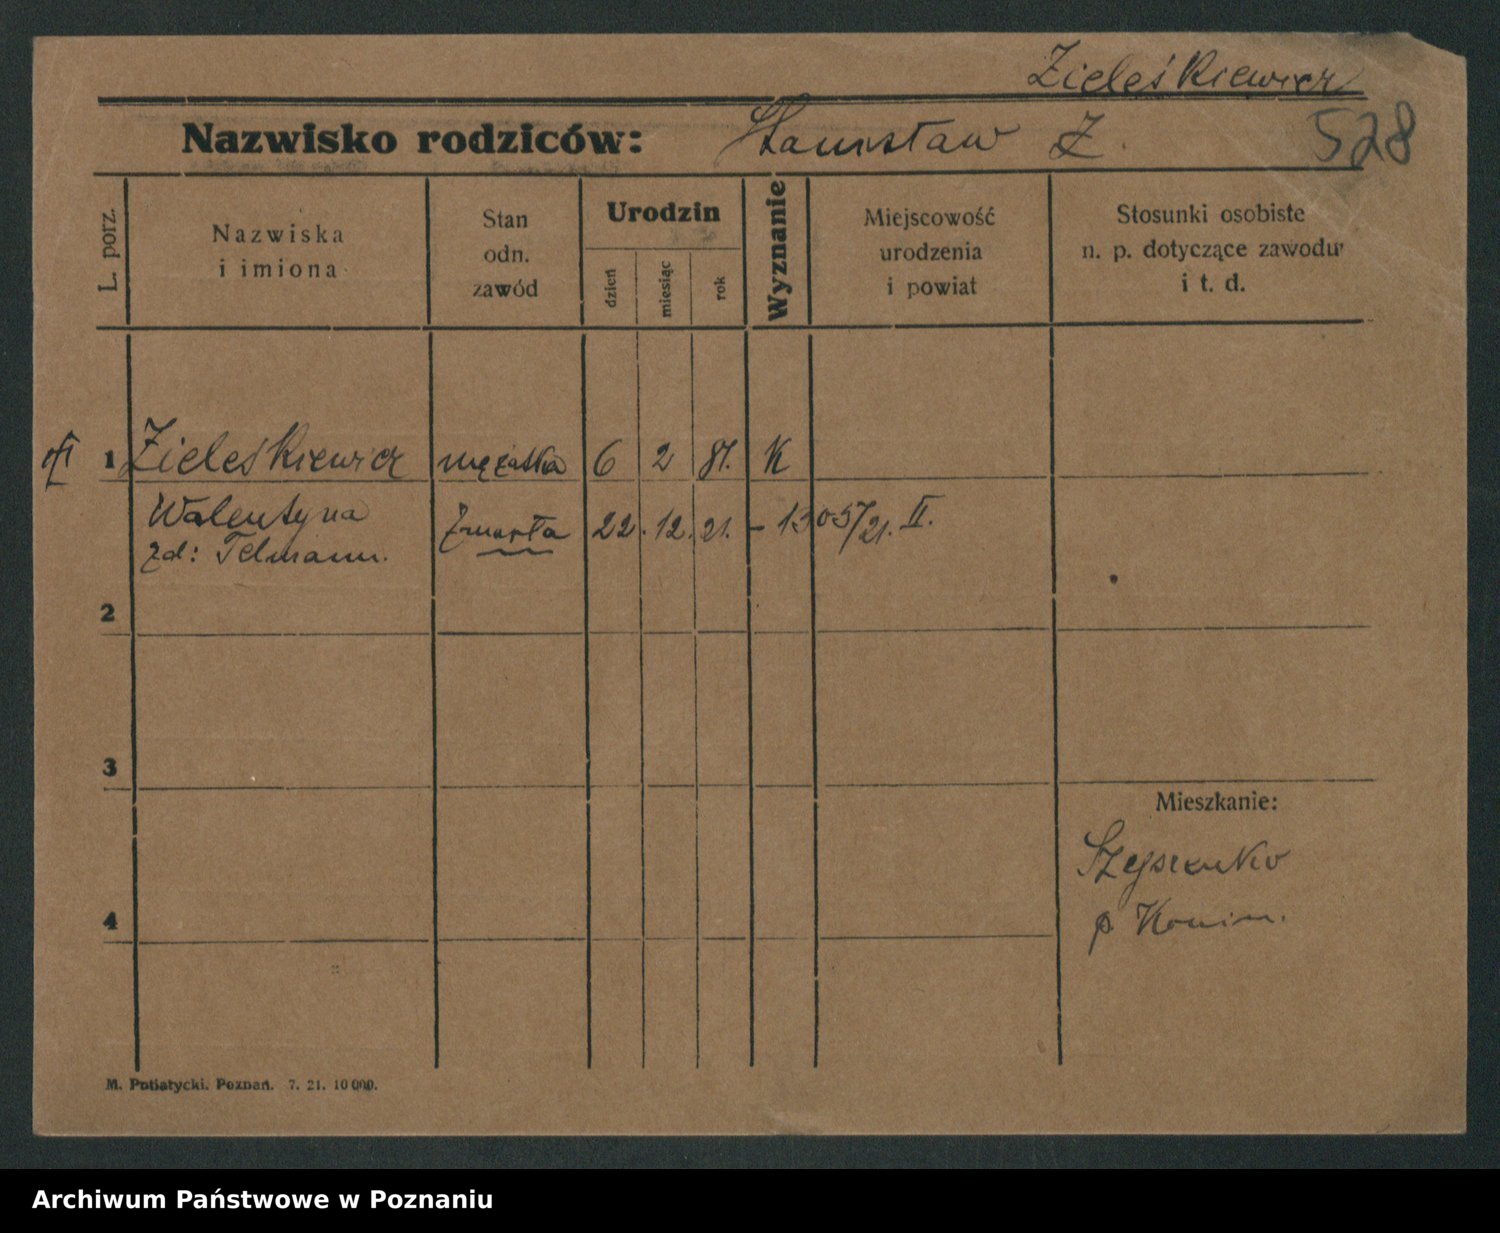 Zieleśkiewicz
Nazwisko rodziców: Stanisław Z.
528
L. porz.
Nazwiska
i imiona
Stan
odn.
zawód
Urodzin
dzień
miesiąc
rok
Wyznanie
Miejscowość
urodzenia
i powiat
Stosunki osobiste
n. p. dotyczące zawodu
i t. d.
1 Zieleśkiewicz mężatka 6 2 87. K
Walentyna zmarła 22. 12. 21. – 1305/21. II.
zd: Telmann.
2
3
Mieszkanie:
4
p. Konin.
M. Putiatycki. Poznań. 7. 21. 10 000.
Archiwum Państwowe w Poznaniu